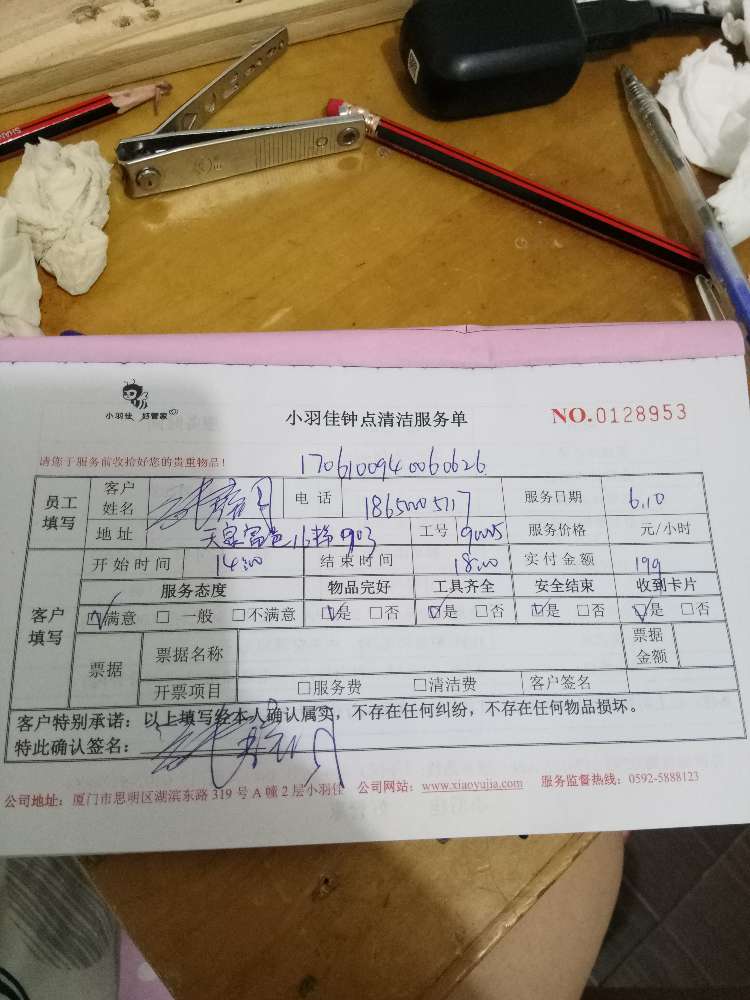 小羽佳 好管家
小羽佳钟点清洁服务单
NO.0128953
请您于服务前收拾好您的贵重物品!
1706100940060626
员工填写 客户姓名 电话 服务日期 6.10
地址 16 903 工号 9005 服务价格 元/小时
客户填写 开始时间 14:00 结束时间 18:00 实付金额 199
服务态度 物品完好 工具齐全 安全结束 收到卡片
☑满意 □一般 □不满意 ☑是 □否 ☑是 □否 ☑是 □否 ☑是 □否
票据 票据名称 票据金额
开票项目 □服务费 □清洁费 客户签名
客户特别承诺:以上填写经本人确认属实,不存在任何纠纷,不存在任何物品损坏。
特此确认签名:
公司地址:厦门市思明区湖滨东路 319 号 A 幢 2 层小羽佳 公司网站:www.xiaoyujia.com 服务监督热线:0592-5888123